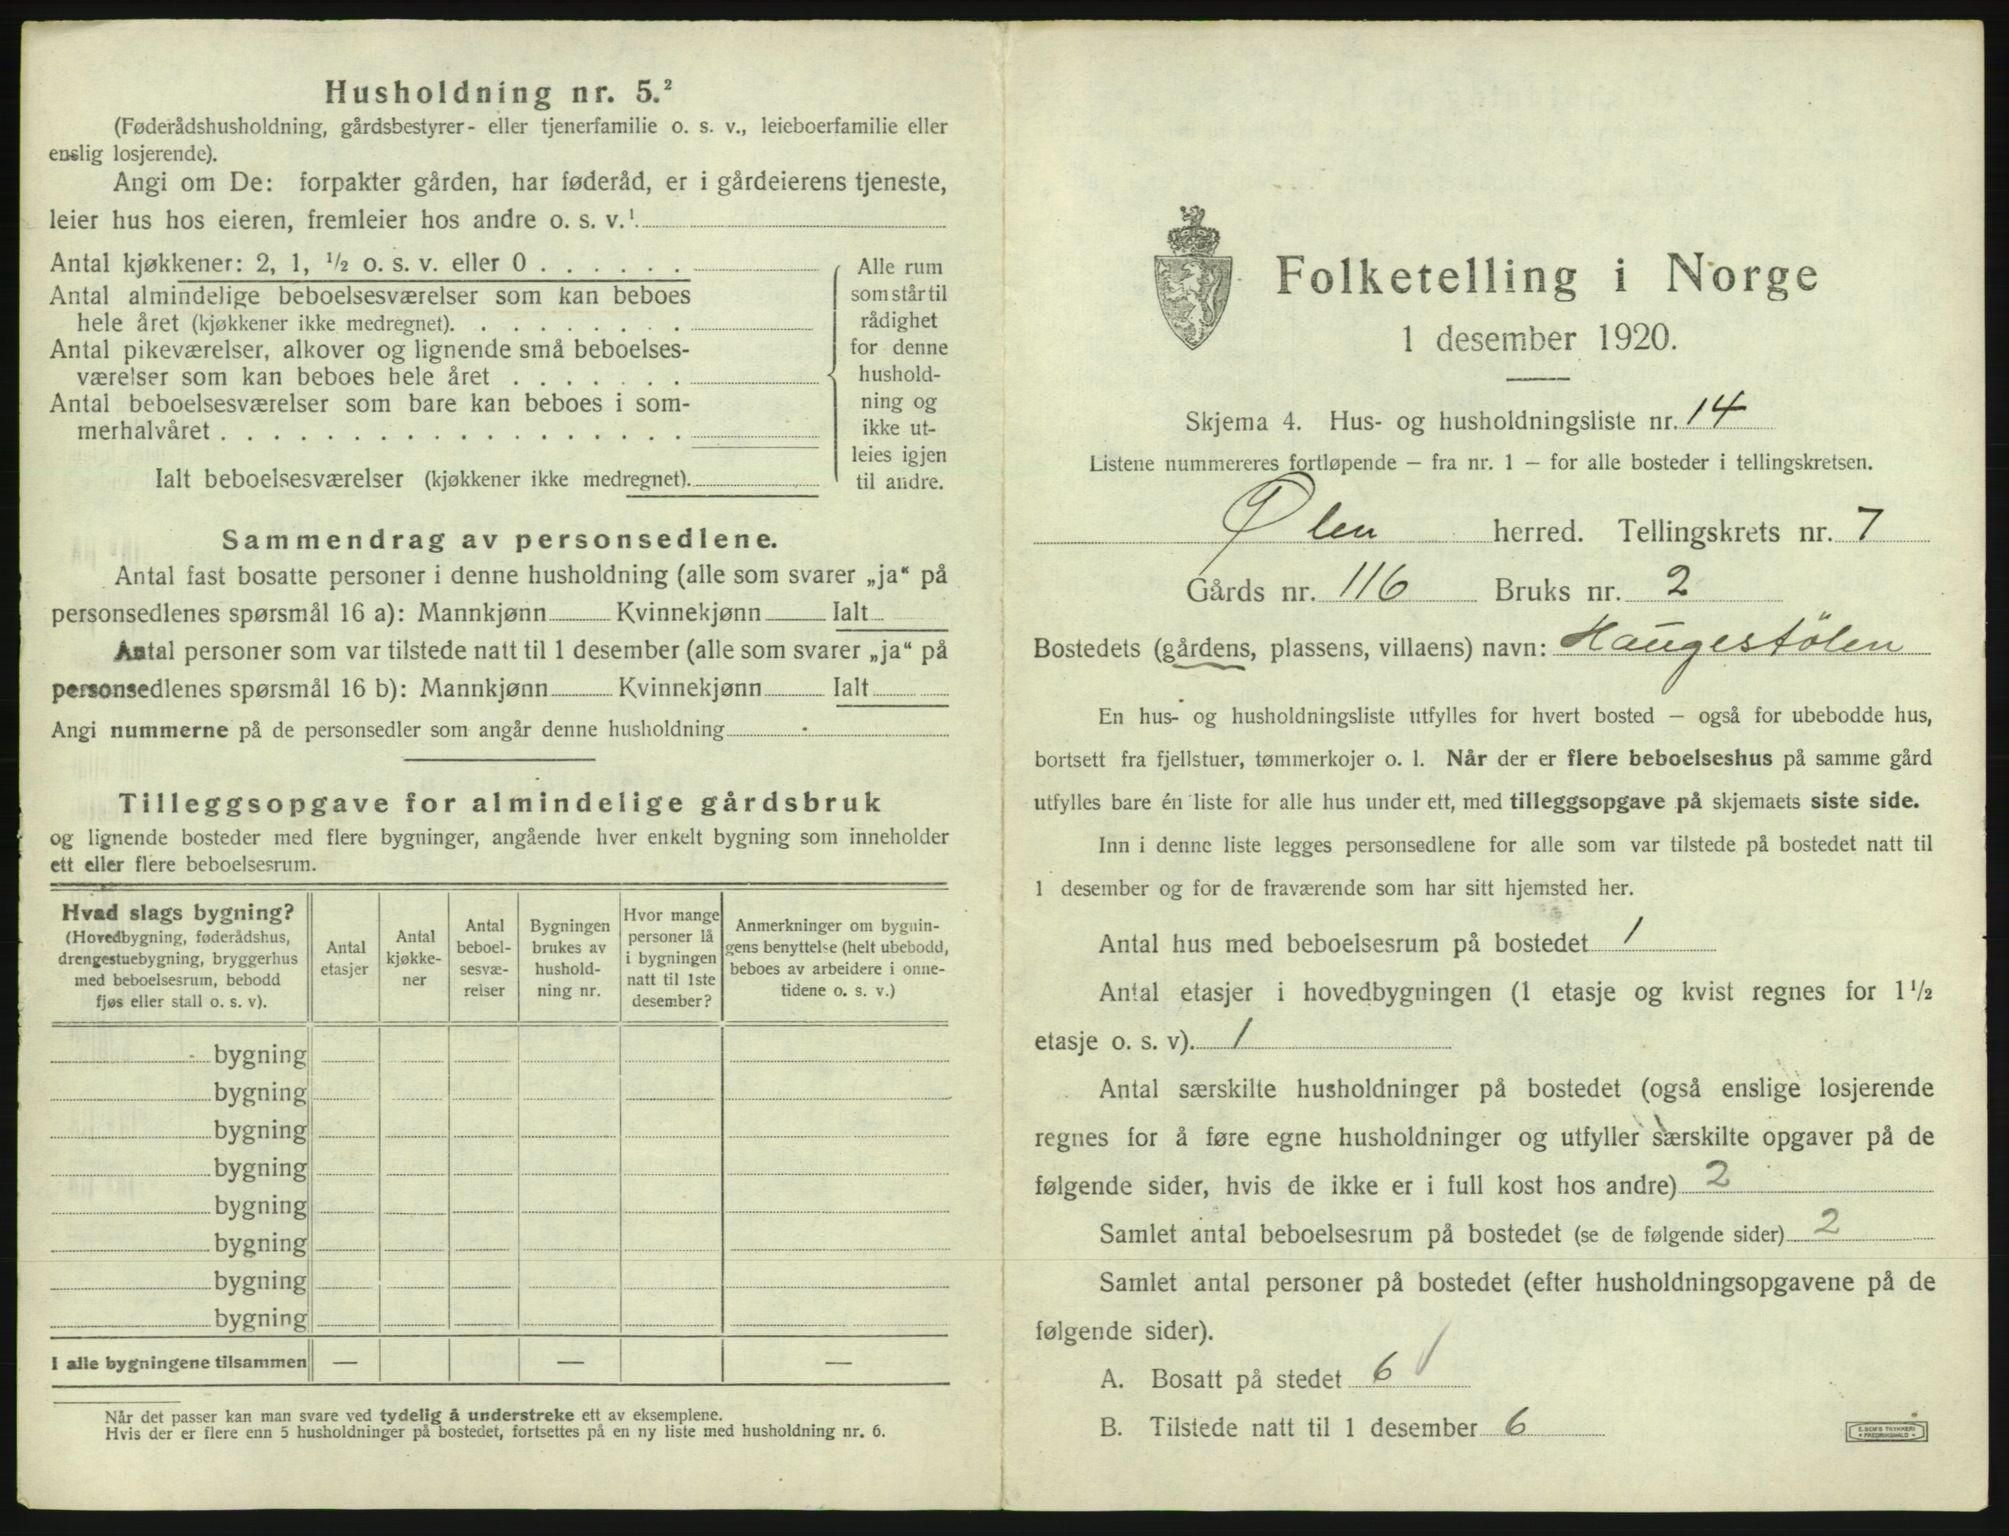 Husholdning nr. 5.²
(Føderådshusholdning, gårdsbestyrer- eller tjenerfamilie o. s. v., leieboerfamilie eller
enslig losjerende).
Angi om De: forpakter gården, har føderåd, er i gårdeierens tjeneste,
leier hus hos eieren, fremleier hos andre o. s. v.¹
Antal kjøkkener: 2, 1, ½ o. s. v. eller 0 . . . . . .
Antal almindelige beboelsesværelser som kan beboes
hele året (kjøkkener ikke medregnet). . . . . . . . .
Antal pikeværelser, alkover og lignende små beboelses-
værelser som kan beboes hele året . . . . . . .
Antal beboelsesværelser som bare kan beboes i som-
merhalvåret . . . . . . . . . . . . . . . . . .
Ialt beboelsesværelser (kjøkkener ikke medregnet).
Alle rum
som står til
rådighet
for denne
hushold-
ning og
ikke ut-
leies igjen
til andre.
Sammendrag av personsedlene.
Antal fast bosatte personer i denne husholdning (alle som svarer „ja“ på
personsedlenes spørsmål 16 a): Mannkjønn Kvinnekjønn Ialt
Antal personer som var tilstede natt til 1 desember (alle som svarer „ja“ på
personsedlenes spørsmål 16 b): Mannkjønn Kvinnekjønn Ialt
Angi nummerne på de personsedler som angår denne husholdning
Tilleggsopgave for almindelige gårdsbruk
og lignende bosteder med flere bygninger, angående hver enkelt bygning som inneholder
ett eller flere beboelsesrum.
Hvad slags bygning?
(Hovedbygning, føderådshus,
drengestuebygning, bryggerhus
med beboelsesrum, bebodd
fjøs eller stall o. s. v).
Antal
etasjer
Antal
kjøkke-
ner
Antal
beboel-
sesvæ-
relser
Bygningen
brukes av
hushold-
ning nr.
Hvor mange
personer lå
i bygningen
natt til 1ste
desember?
Anmerkninger om bygnin-
gens benyttelse (helt ubebodd,
beboes av arbeidere i onne-
tidene o. s. v.)
bygning
bygning
bygning
bygning
bygning
bygning
bygning
bygning
I alle bygningene tilsammen — — —
Når det passer kan man svare ved tydelig å understreke ett av eksemplene.
Hvis der er flere enn 5 husholdninger på bostedet, fortsettes på en ny liste med husholdning nr. 6.
Folketelling i Norge
1 desember 1920.
Skjema 4. Hus- og husholdningsliste nr. 14
Listene nummereres fortløpende – fra nr. 1 – for alle bosteder i tellingskretsen.
Ølen herred. Tellingskrets nr. 7
Gårds nr. 116 Bruks nr. 2
Bostedets (gårdens, plassens, villaens) navn: Haugestölen
En hus- og husholdningsliste utfylles for hvert bosted – også for ubebodde hus,
bortsett fra fjellstuer, tømmerkojer o. l. Når der er flere beboelseshus på samme gård
utfylles bare én liste for alle hus under ett, med tilleggsopgave på skjemaets siste side.
Inn i denne liste legges personsedlene for alle som var tilstede på bostedet natt til
1 desember og for de fraværende som har sitt hjemsted her.
Antal hus med beboelsesrum på bostedet 1
Antal etasjer i hovedbygningen (1 etasje og kvist regnes for 1½
etasje o. s. v). 1
Antal særskilte husholdninger på bostedet (også enslige losjerende
regnes for å føre egne husholdninger og utfyller særskilte opgaver på de
følgende sider, hvis de ikke er i full kost hos andre) 2
Samlet antal beboelsesrum på bostedet (se de følgende sider) 2
Samlet antal personer på bostedet (efter husholdningsopgavene på de
følgende sider).
A. Bosatt på stedet 6
B. Tilstede natt til 1 desember 6
E. SEM'S TRYKKERI
FREDRIKSHALD